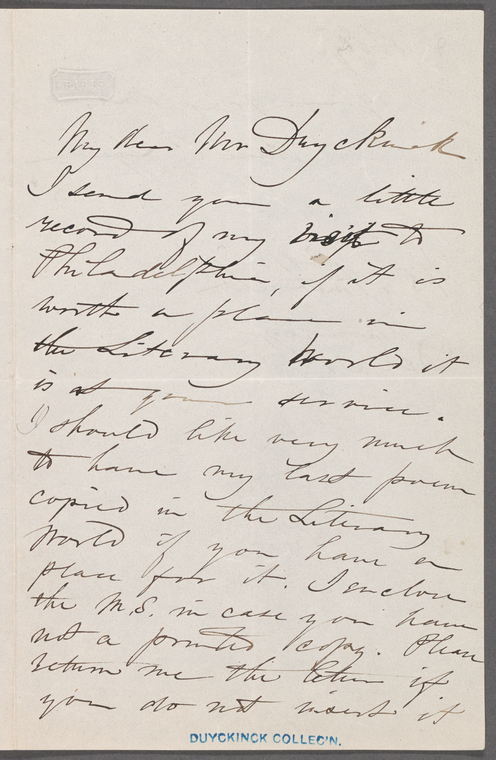 My dear Mr Duyckinck
I send you a little
record of my visit to
Philadelphia, if it is
worth a place in
the Literary World it
is at your service.
I should like very much
to have my last poem
copied in the Literary
World if you have a
place for it. I enclose
the M.S. in case you have
not a printed copy. Please
return me the letter if
you do not insert it
DUYCKINCK COLLEC'N.